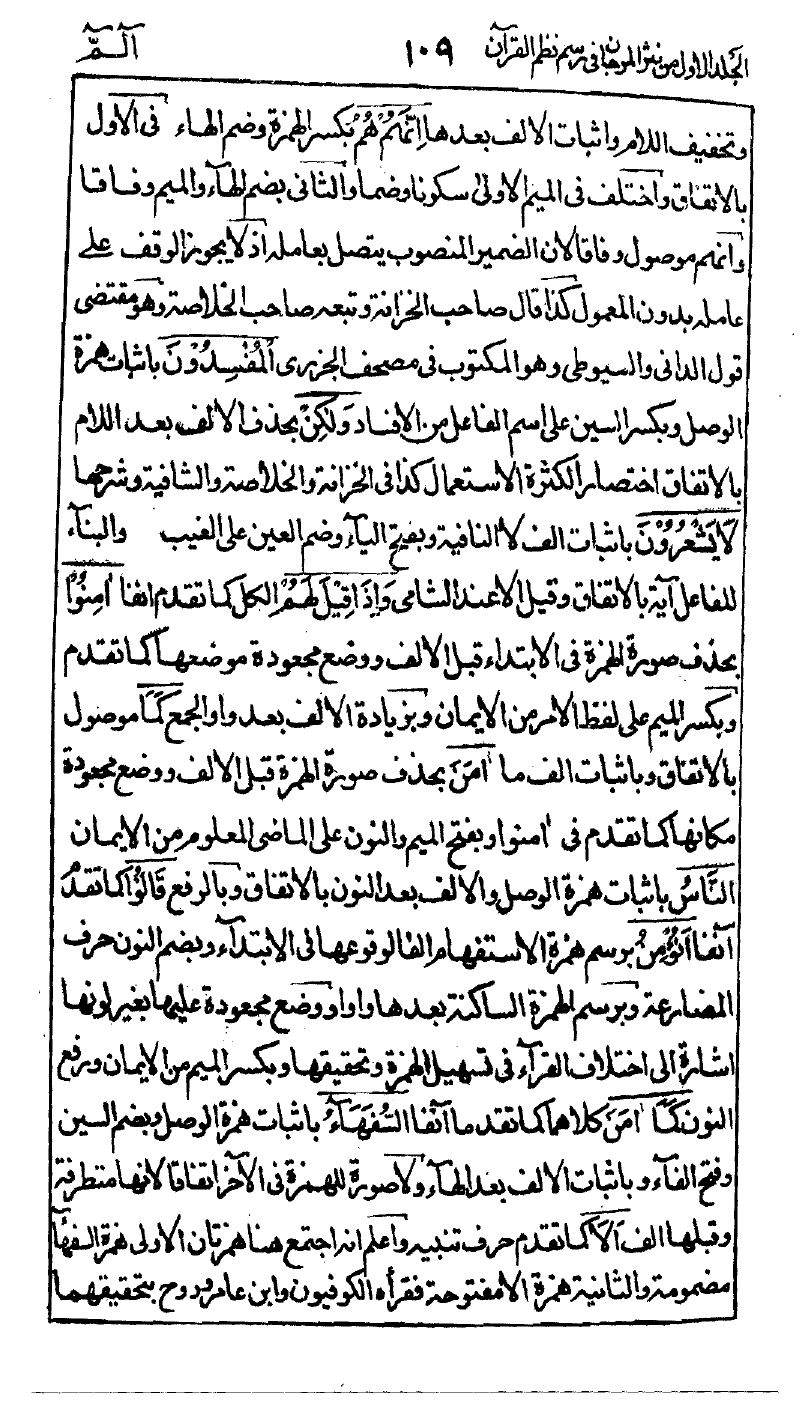 الجلد الاول من نثر المرجان في رسم نظم القرآن ١٠٩ آلٓمّٓ
وتخفيف اللام واثبات الالف بعدها اِنَّهُمْ هُمُ بكسر الهمزة وضم الهاء فى الاول
بالاتفاق واختلف فى الميم الاولى سكونا وضما والثانى بضم الهآء والميم وفاقا
وانهم موصول وفاقا لان الضمير المنصوب يتصل بعامله اذ لا يجوز الوقف على
عامله بدون المعمول كذا قال صاحب الخزانة وتبعه صاحب الخلاصة وهو مقتضى
قول الدانى والسيوطى وهو المكتوب فى مصحف الجزرى الْمُفْسِدُوْنَ باثبات همزة
الوصل وبكسر السين على اسم الفاعل من الافساد وَلٰكِنْ بحذف الالف بعد اللام
بالاتفاق اختصارا لكثرة الاستعمال كذا فى الخزانة والخلاصة والشافية وشرحها
لَا يَشْعُرُوْنَ باثبات الف لا النافية وبفتح اليآء وضم العين على الغيب والبنآء
للفاعل آية بالاتفاق وقيل الا عند الشامى وَاِذَا قِيْلَ لَهُمْ الكل كما تقدم انفا اٰمِنُوْا
بحذف صورة الهمزة فى الابتداء قبل الالف ووضع مجعودة موضعها كما تقدم
وبكسر الميم على لفظ الامر من الايمان وبزيادة الالف بعد واو الجمع كَمَآ موصول
بالاتفاق وباثبات الف ما اٰمَنَ بحذف صورة الهمزة قبل الالف ووضع مجعودة
مكانها كما تقدم فى اٰمنوا وبفتح الميم والنون على الماضى المعلوم من الايمان
النَّاسُ باثبات همزة الوصل والالف بعد النون بالاتفاق وبالرفع قَالُوْٓا كما تقدم
آنفا اَنُؤْمِنُ برسم همزة الاستفهام الفا لوقوعها فى الابتدآء وبضم النون حرف
المضارعة وبرسم الهمزة الساكنة بعدها واوا ووضع مجعودة عليها بغير لونها
اشارة الى اختلاف القرآء فى تسهيل الهمزة وتحقيقها وبكسر الميم من الايمان ورفع
النون كَمَآ اٰمَنَ كلاهما كما تقدما آنفا السُّفَهَآءُ باثبات همزة الوصل وبضم السين
وفتح الفآء وباثبات الالف بعد الهآء ولا صورة للهمزة فى الآخر اتفاقا لانها متطرفة
وقبلها الف اَلَآ كما تقدم حرف تنبيه واعلم انه اجتمع هنا همزتان الاولى همزة السفهآء
مضمومة والثانية همزة الا مفتوحة فقرأه الكوفيون وابن عامر وروح بتحقيقهما